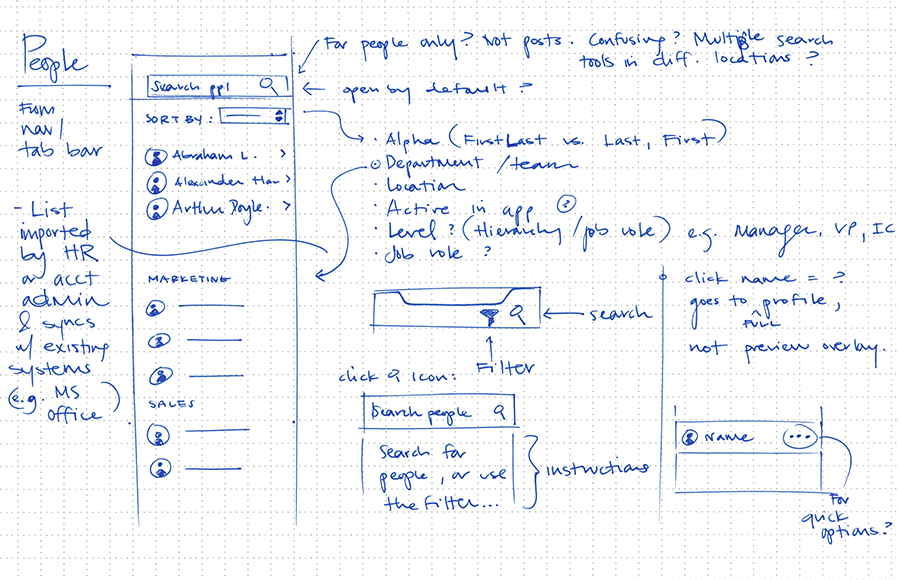 People
From
nav/
tab bar
- List
imported
by HR
or acct
admin
& syncs
w/ existing
systems
(e.g. MS
office)
Search ppl
SORT BY:
Abraham L. >
Alexander Ham >
Arthur Doyle. >
MARKETING
SALES
For people only? Not posts. Confusing? Multiple search
tools in diff. locations?
open by default?
· Alpha (First Last vs. Last, First)
· Department /team
· Location
· Active in app ?
· Level? (Hierarchy/job role) e.g. Manager, VP, IC
· Job role ?
search
Filter
click Q icon:
Search people
Search for
people, or use
the filter...
instructions
click name = ?
goes to profile,
FULL
not preview overlay.
Name
...
For
quick
options?